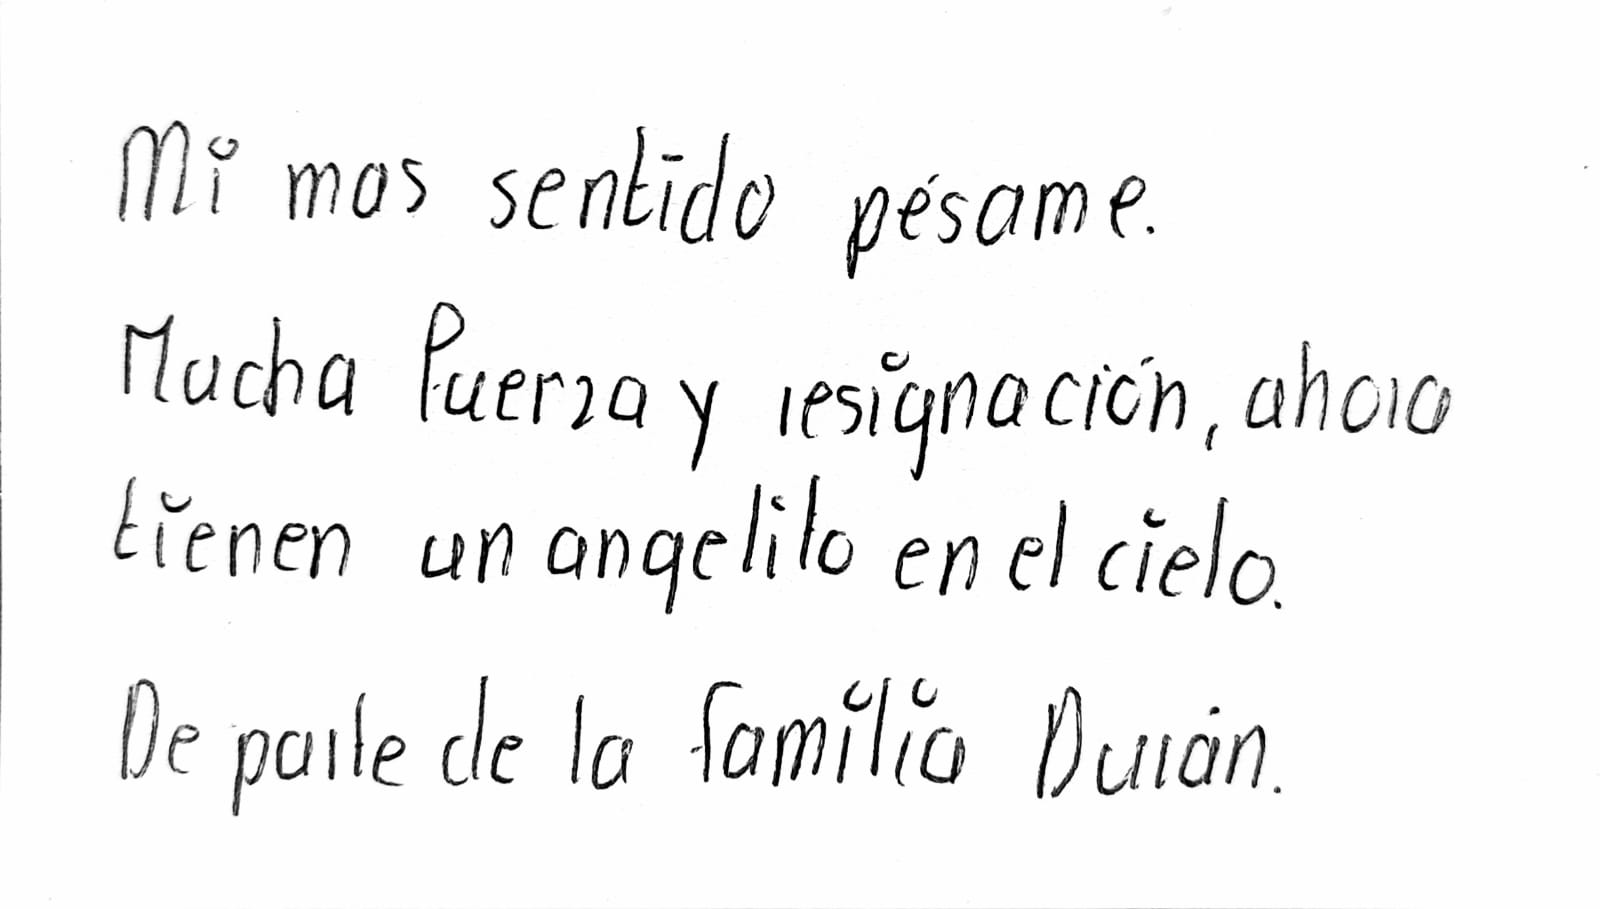 Mi mas sentido pésame.
Mucha fuerza y resignación, ahora
tienen un angelito en el cielo.
De parte de la familia Durán.